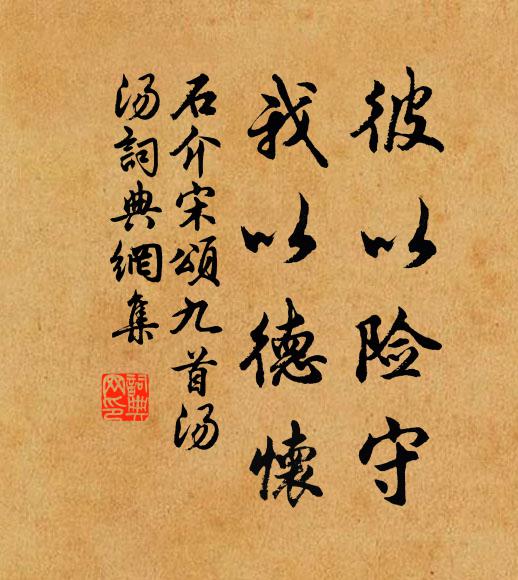 彼以险守
我以德懷
石介宋頌九首汤
汤詞典網集
詞典
网印